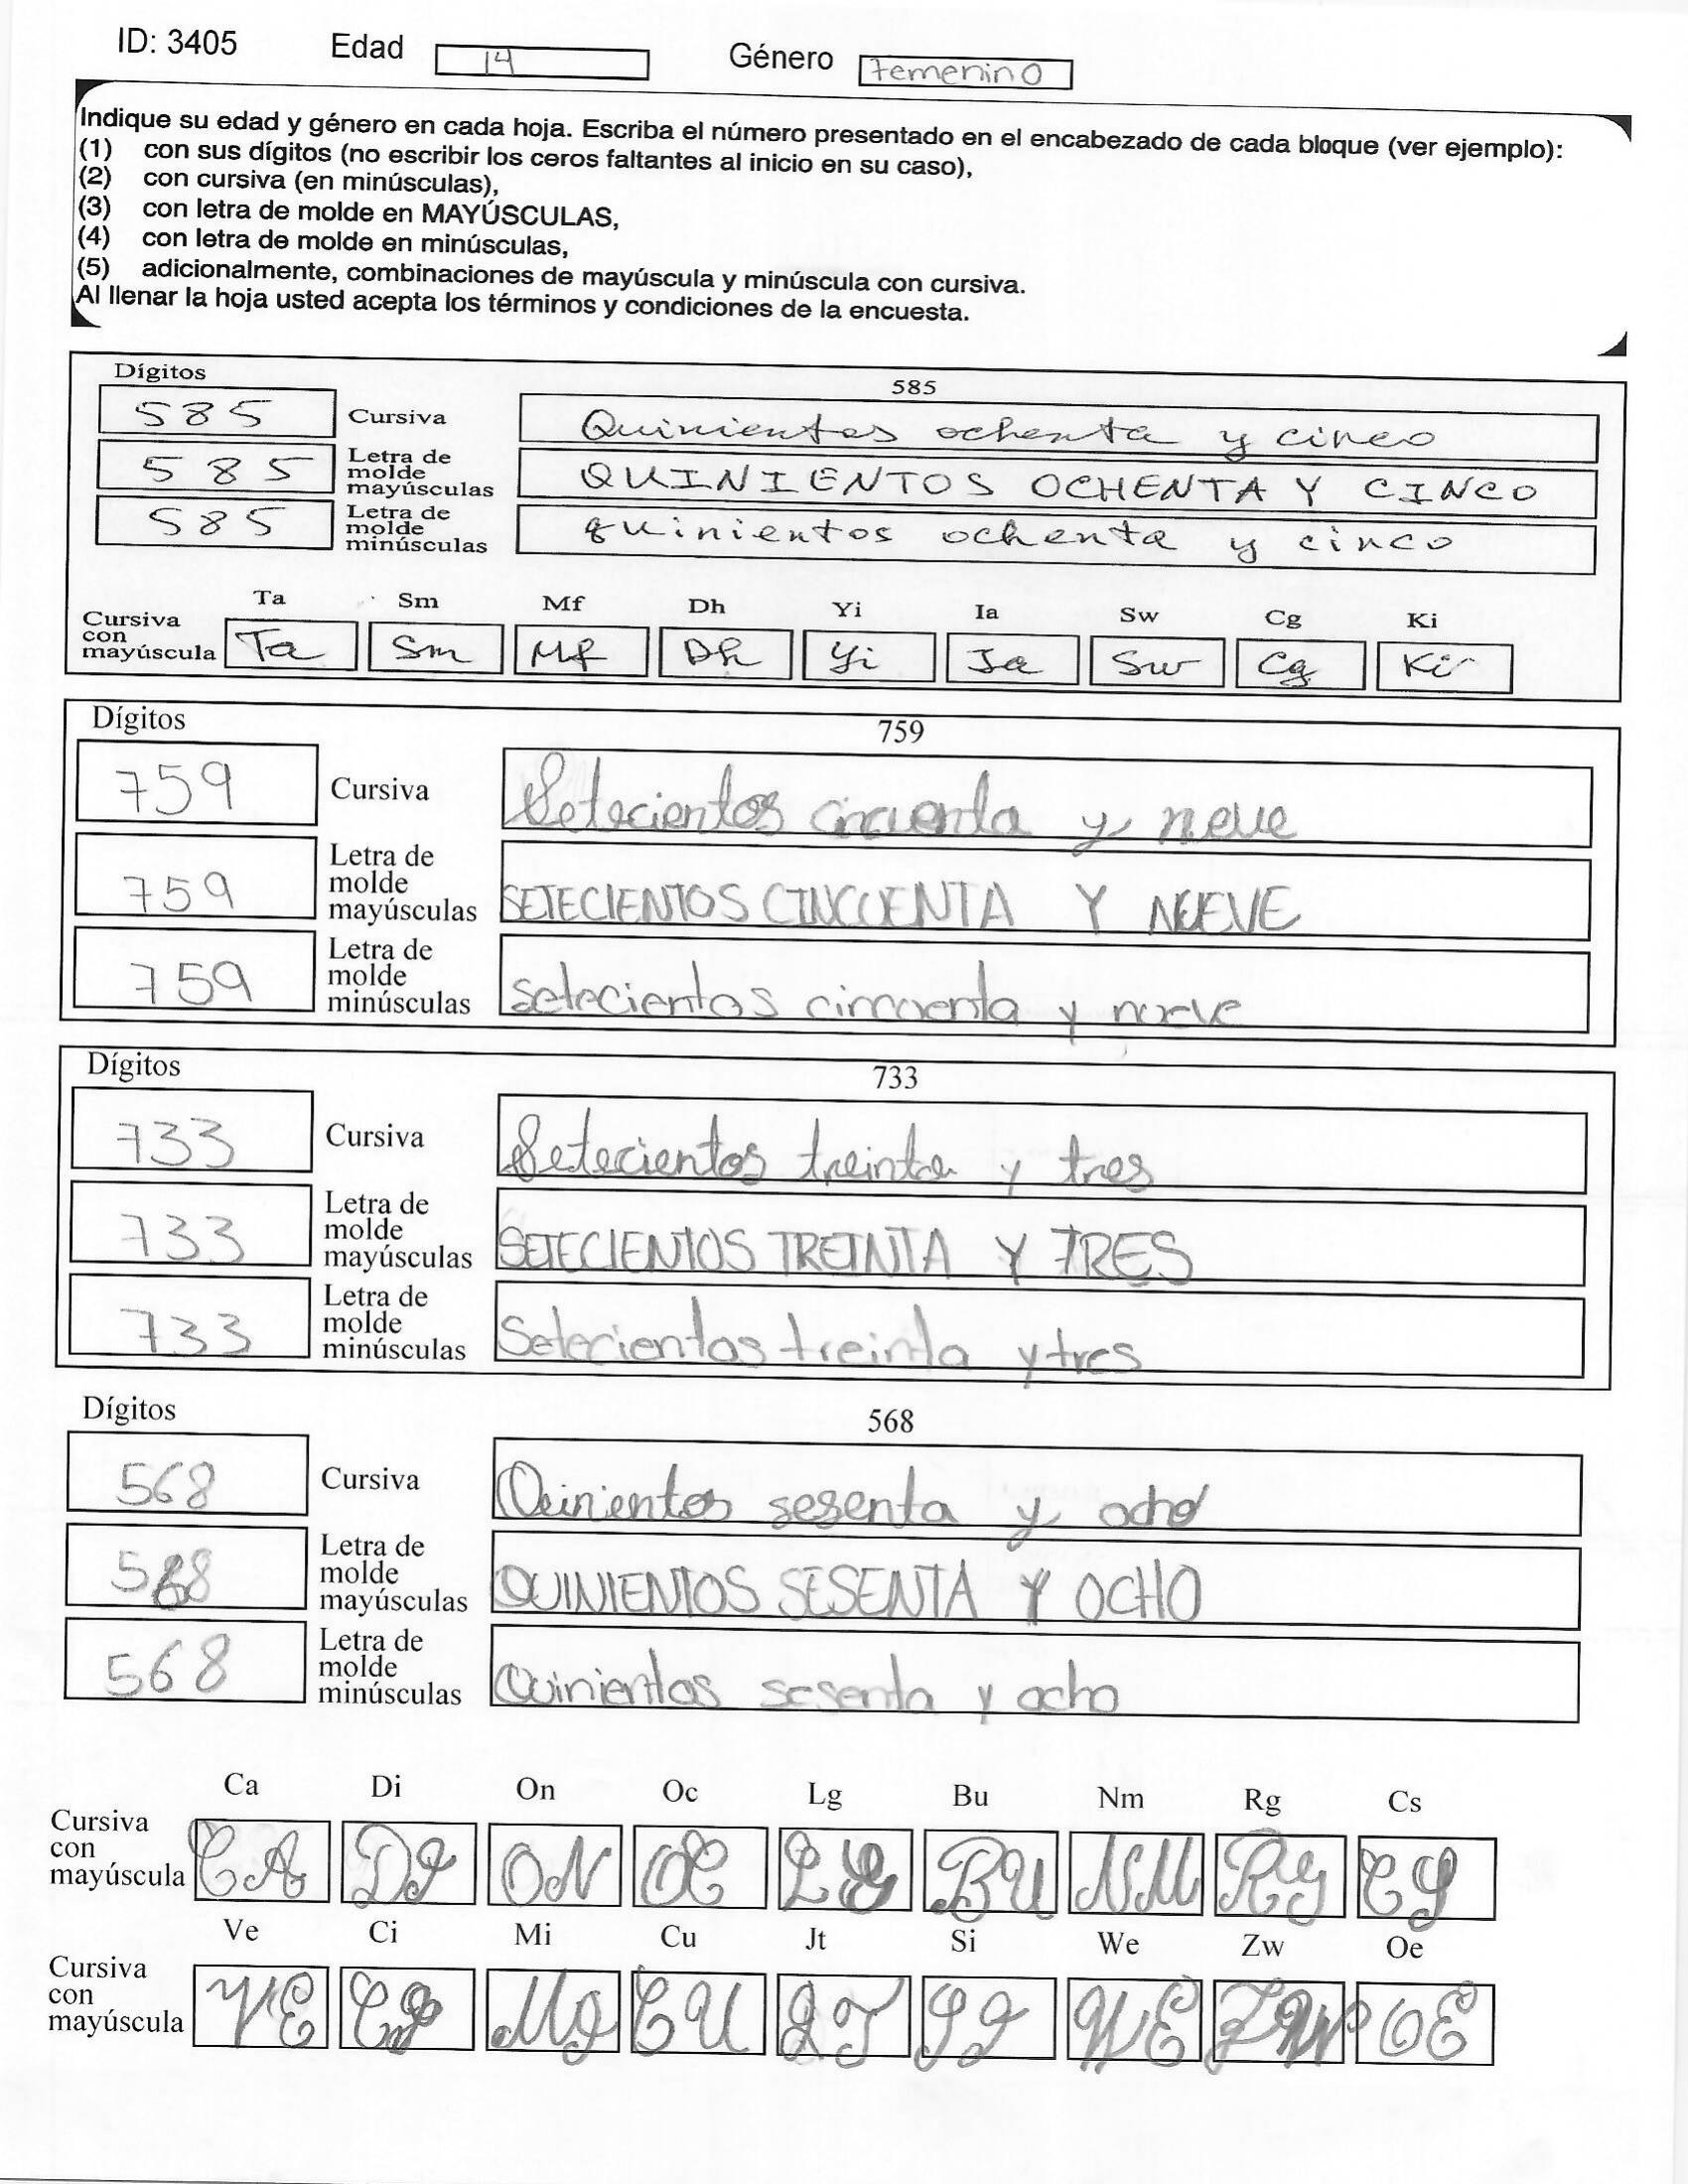 ID: 3405 Edad 14 Género Femenino
Indique su edad y género en cada hoja. Escriba el número presentado en el encabezado de cada bloque (ver ejemplo):
(1) con sus dígitos (no escribir los ceros faltantes al inicio en su caso),
(2) con cursiva (en minúsculas),
(3) con letra de molde en MAYÚSCULAS,
(4) con letra de molde en minúsculas,
(5) adicionalmente, combinaciones de mayúscula y minúscula con cursiva.
Al llenar la hoja usted acepta los términos y condiciones de la encuesta.
Dígitos 585
585 Cursiva Quinientos ochenta y cinco
585 Letra de molde mayúsculas QUINIENTOS OCHENTA Y CINCO
585 Letra de molde minúsculas quinientos ochenta y cinco
Ta Sm Mf Dh Yi Ia Sw Cg Ki
Cursiva con mayúscula Ta Sm Mf Dh Yi Ia Sw Cg Ki
Dígitos 759
759 Cursiva Setecientos cincuenta y neve
759 Letra de molde mayúsculas SETECIENTOS CINCUENTA Y NUEVE
759 Letra de molde minúsculas setecientos cincuenta y nueve
Dígitos 733
733 Cursiva Setecientos treinta y tres
733 Letra de molde mayúsculas SETECIENTOS TREINTA Y TRES
733 Letra de molde minúsculas Setecientos treinta y tres
Dígitos 568
568 Cursiva Quinientos sesenta y ocho
568 Letra de molde mayúsculas QUINIENTOS SESENTA Y OCHO
568 Letra de molde minúsculas Quinientos sesenta y ocho
Ca Di On Oc Lg Bu Nm Rg Cs
Cursiva con mayúscula CA DI ON OC LG BU NM RG CS
Ve Ci Mi Cu Jt Si We Zw Oe
Cursiva con mayúscula VE CI MI CU JT SI WE ZW OE